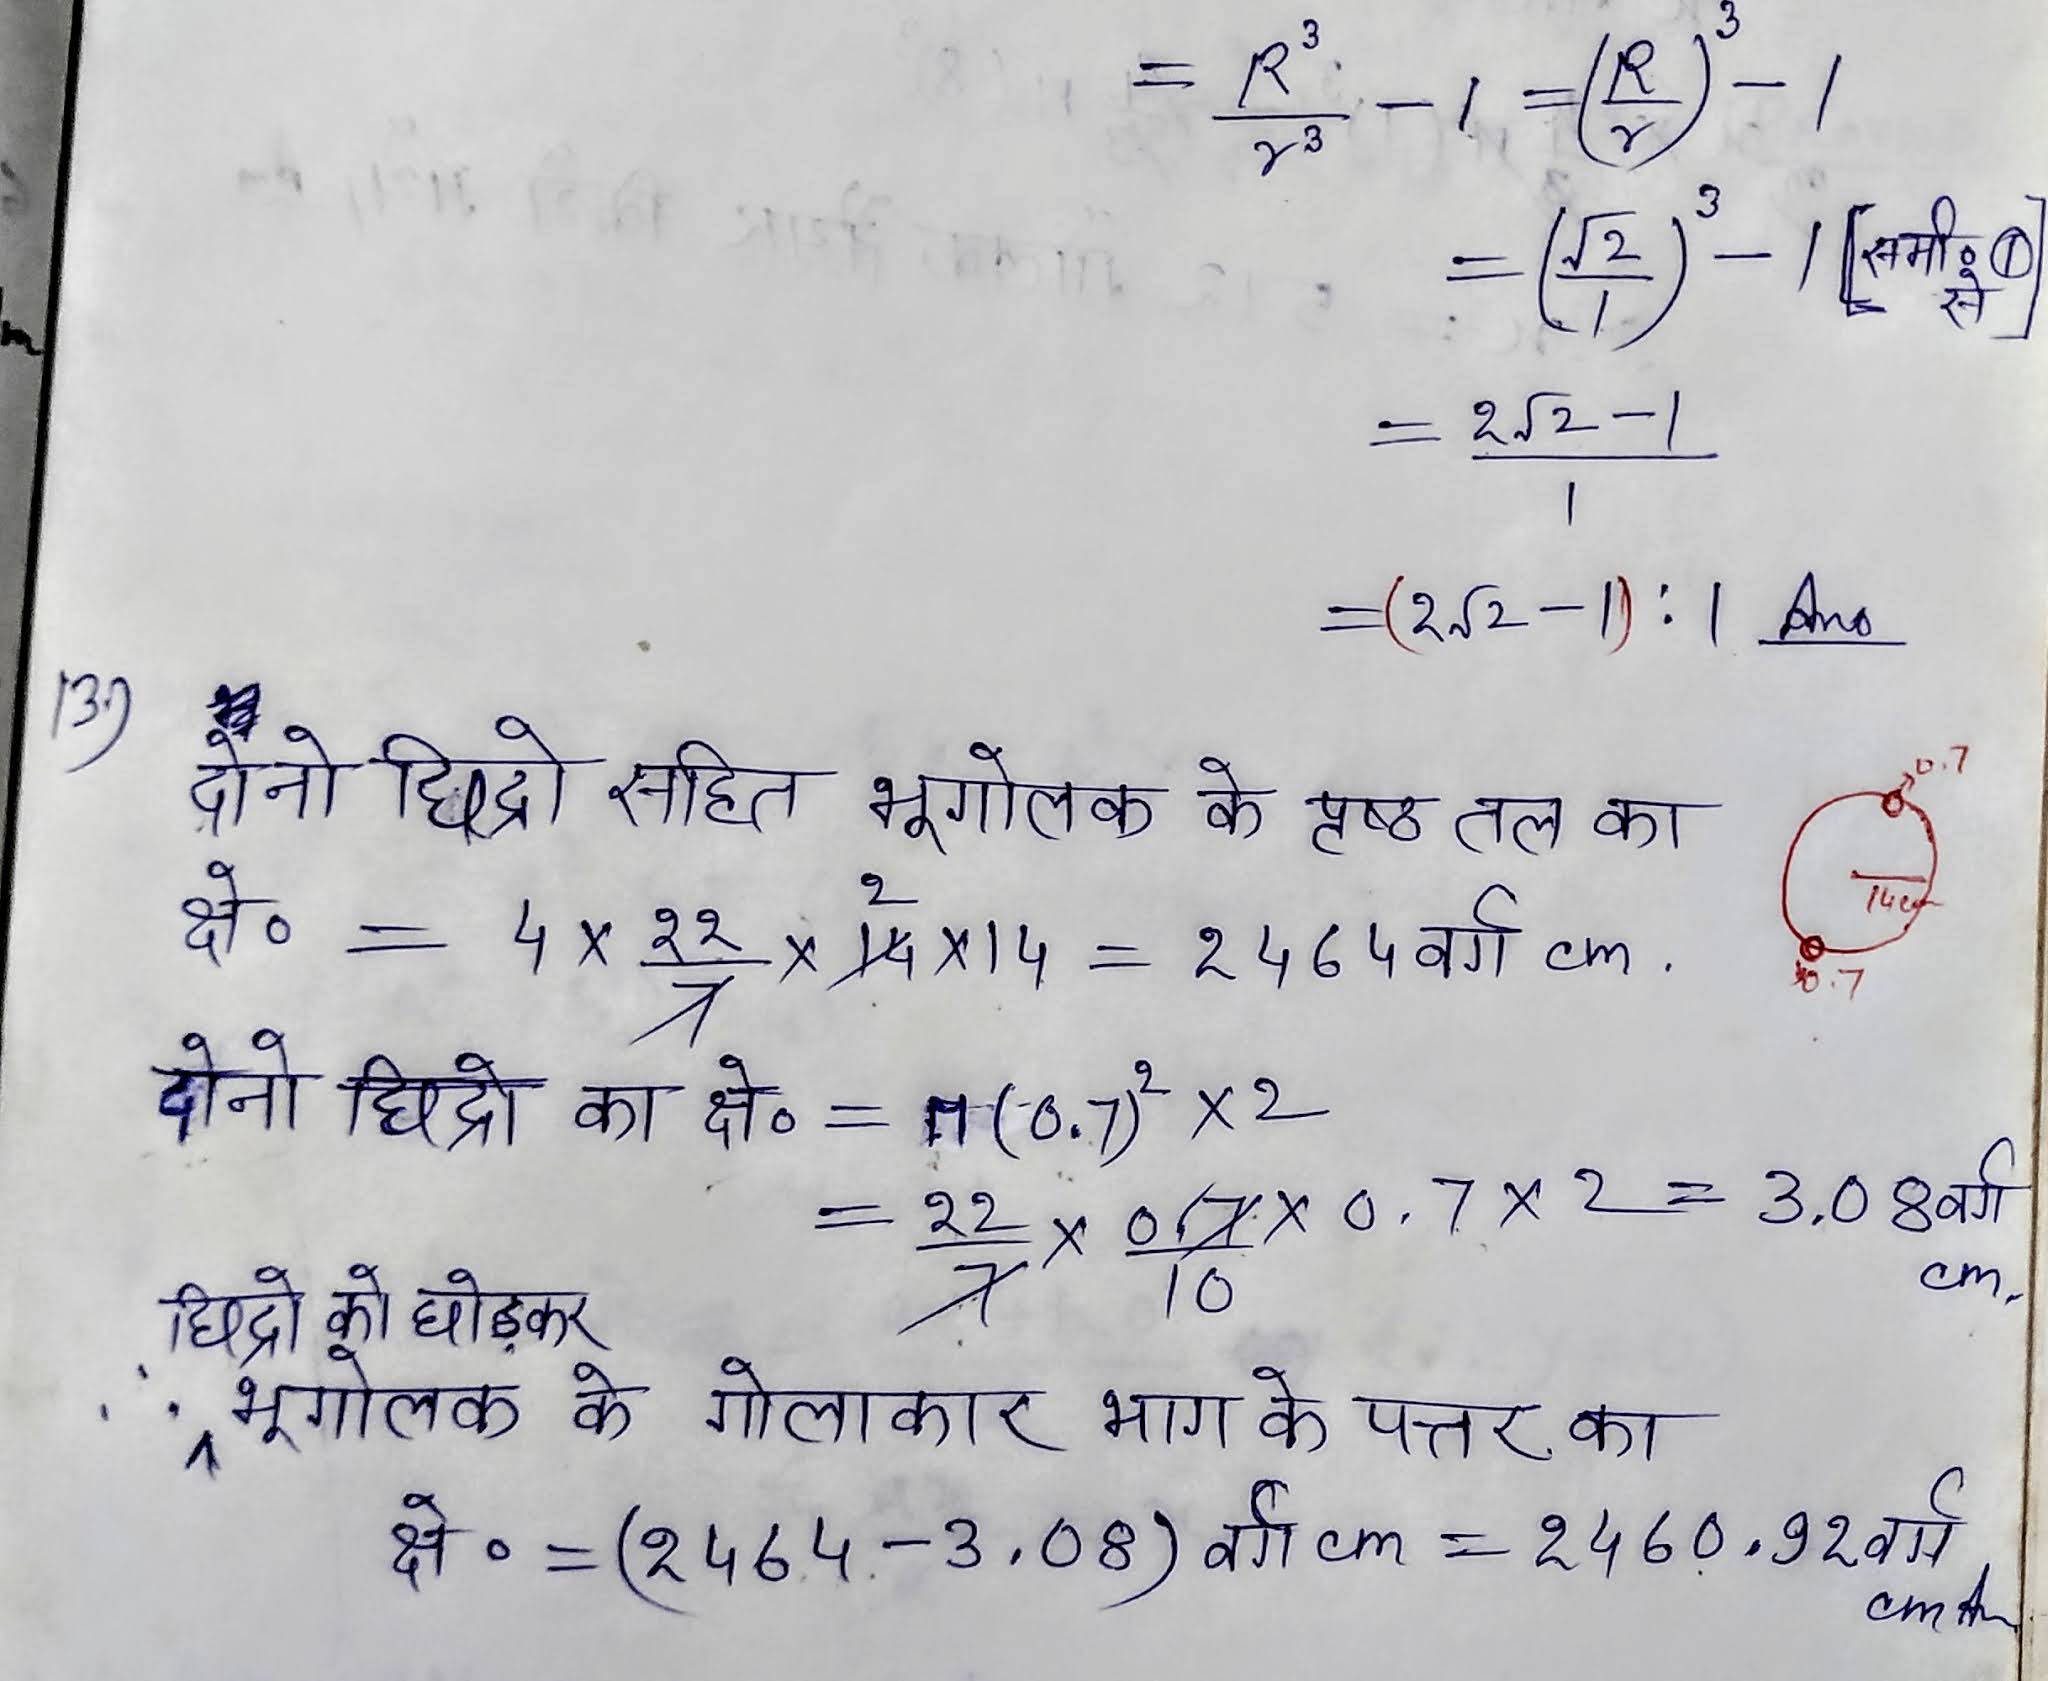 = R³/r³ - 1 = (R/r)³ - 1
= (√2/1)³ - 1 [समी० ① से]
= 2√2 - 1 / 1
= (2√2 - 1) : 1 Ans
13.)
दोनो छिद्रो सहित भूगोलक के पृष्ठ तल का
0.7
क्षे० = 4 × 22/7 × 14 × 14 = 2464 वर्ग cm.
2
14cm
0.7
दोनो छिद्रो का क्षे० = π(0.7)² × 2
= 22/7 × 0.7/10 × 0.7 × 2 = 3.08 वर्ग cm.
छिद्रो को छोड़कर
∴ भूगोलक के गोलाकार भाग के पत्तर का
क्षे० = (2464 - 3.08) वर्ग cm = 2460.92 वर्ग cm An